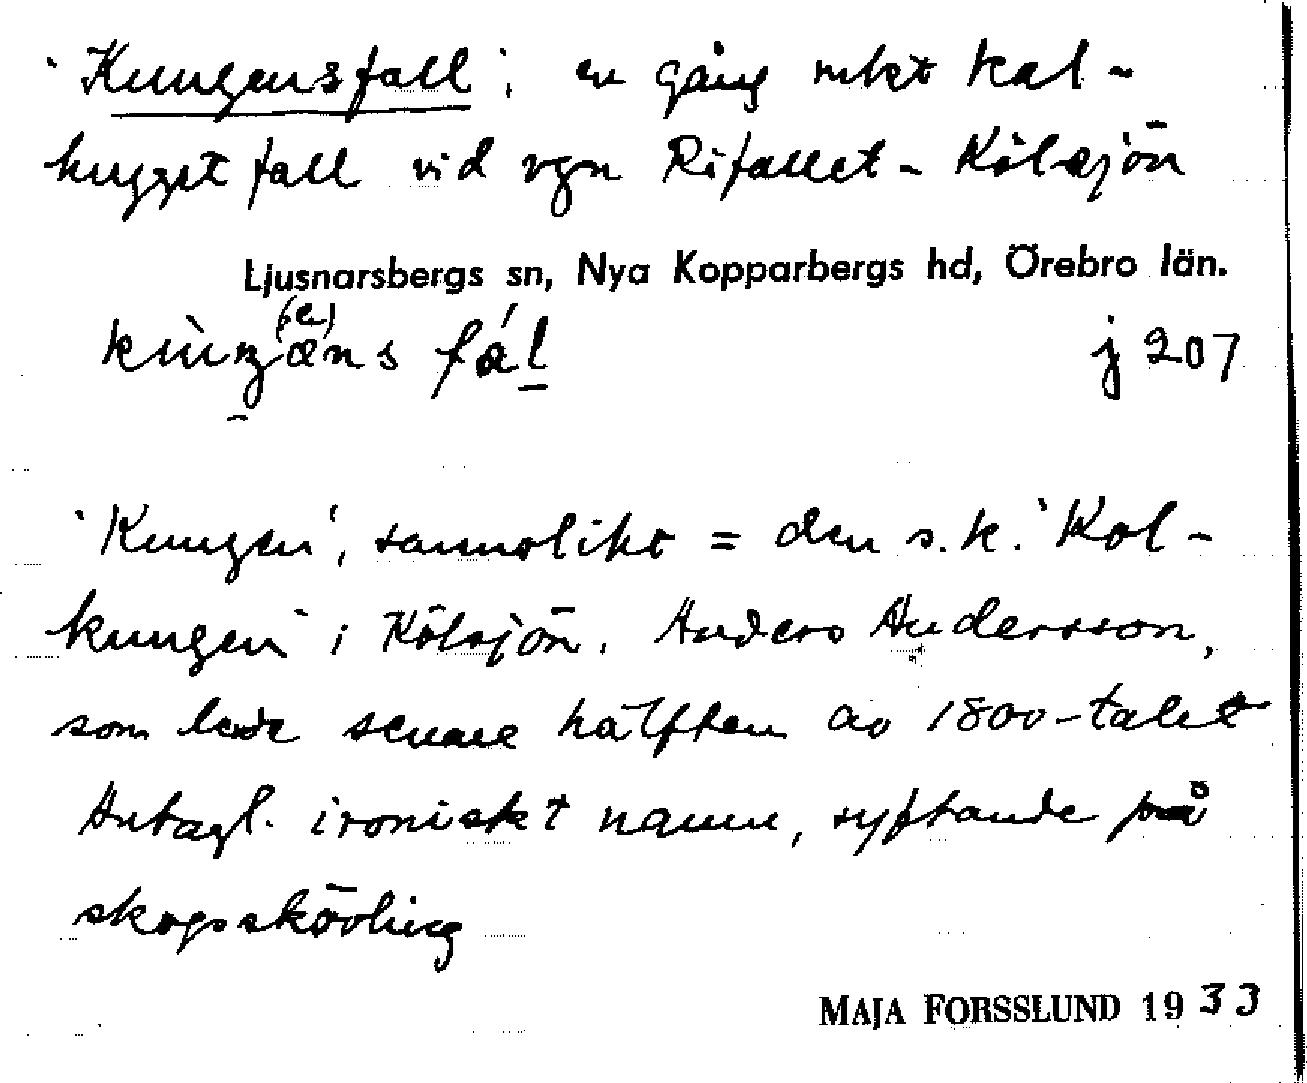 'Kungensfall', en gång rikt kal-
hygget fall vid vgn Rifallet - Kölsjön
Ljusnarsbergs sn, Nya Kopparbergs hd, Örebro län.
j 207
'Kungen', sannolikt = den s.k. 'Kol-
kungen' i Kölsjön. Anders Andersson,
som levde senare hälften av 1800-talet
Antagl. ironiskt namn, syftande på
skogsskövling
MAJA FORSSLUND 1933